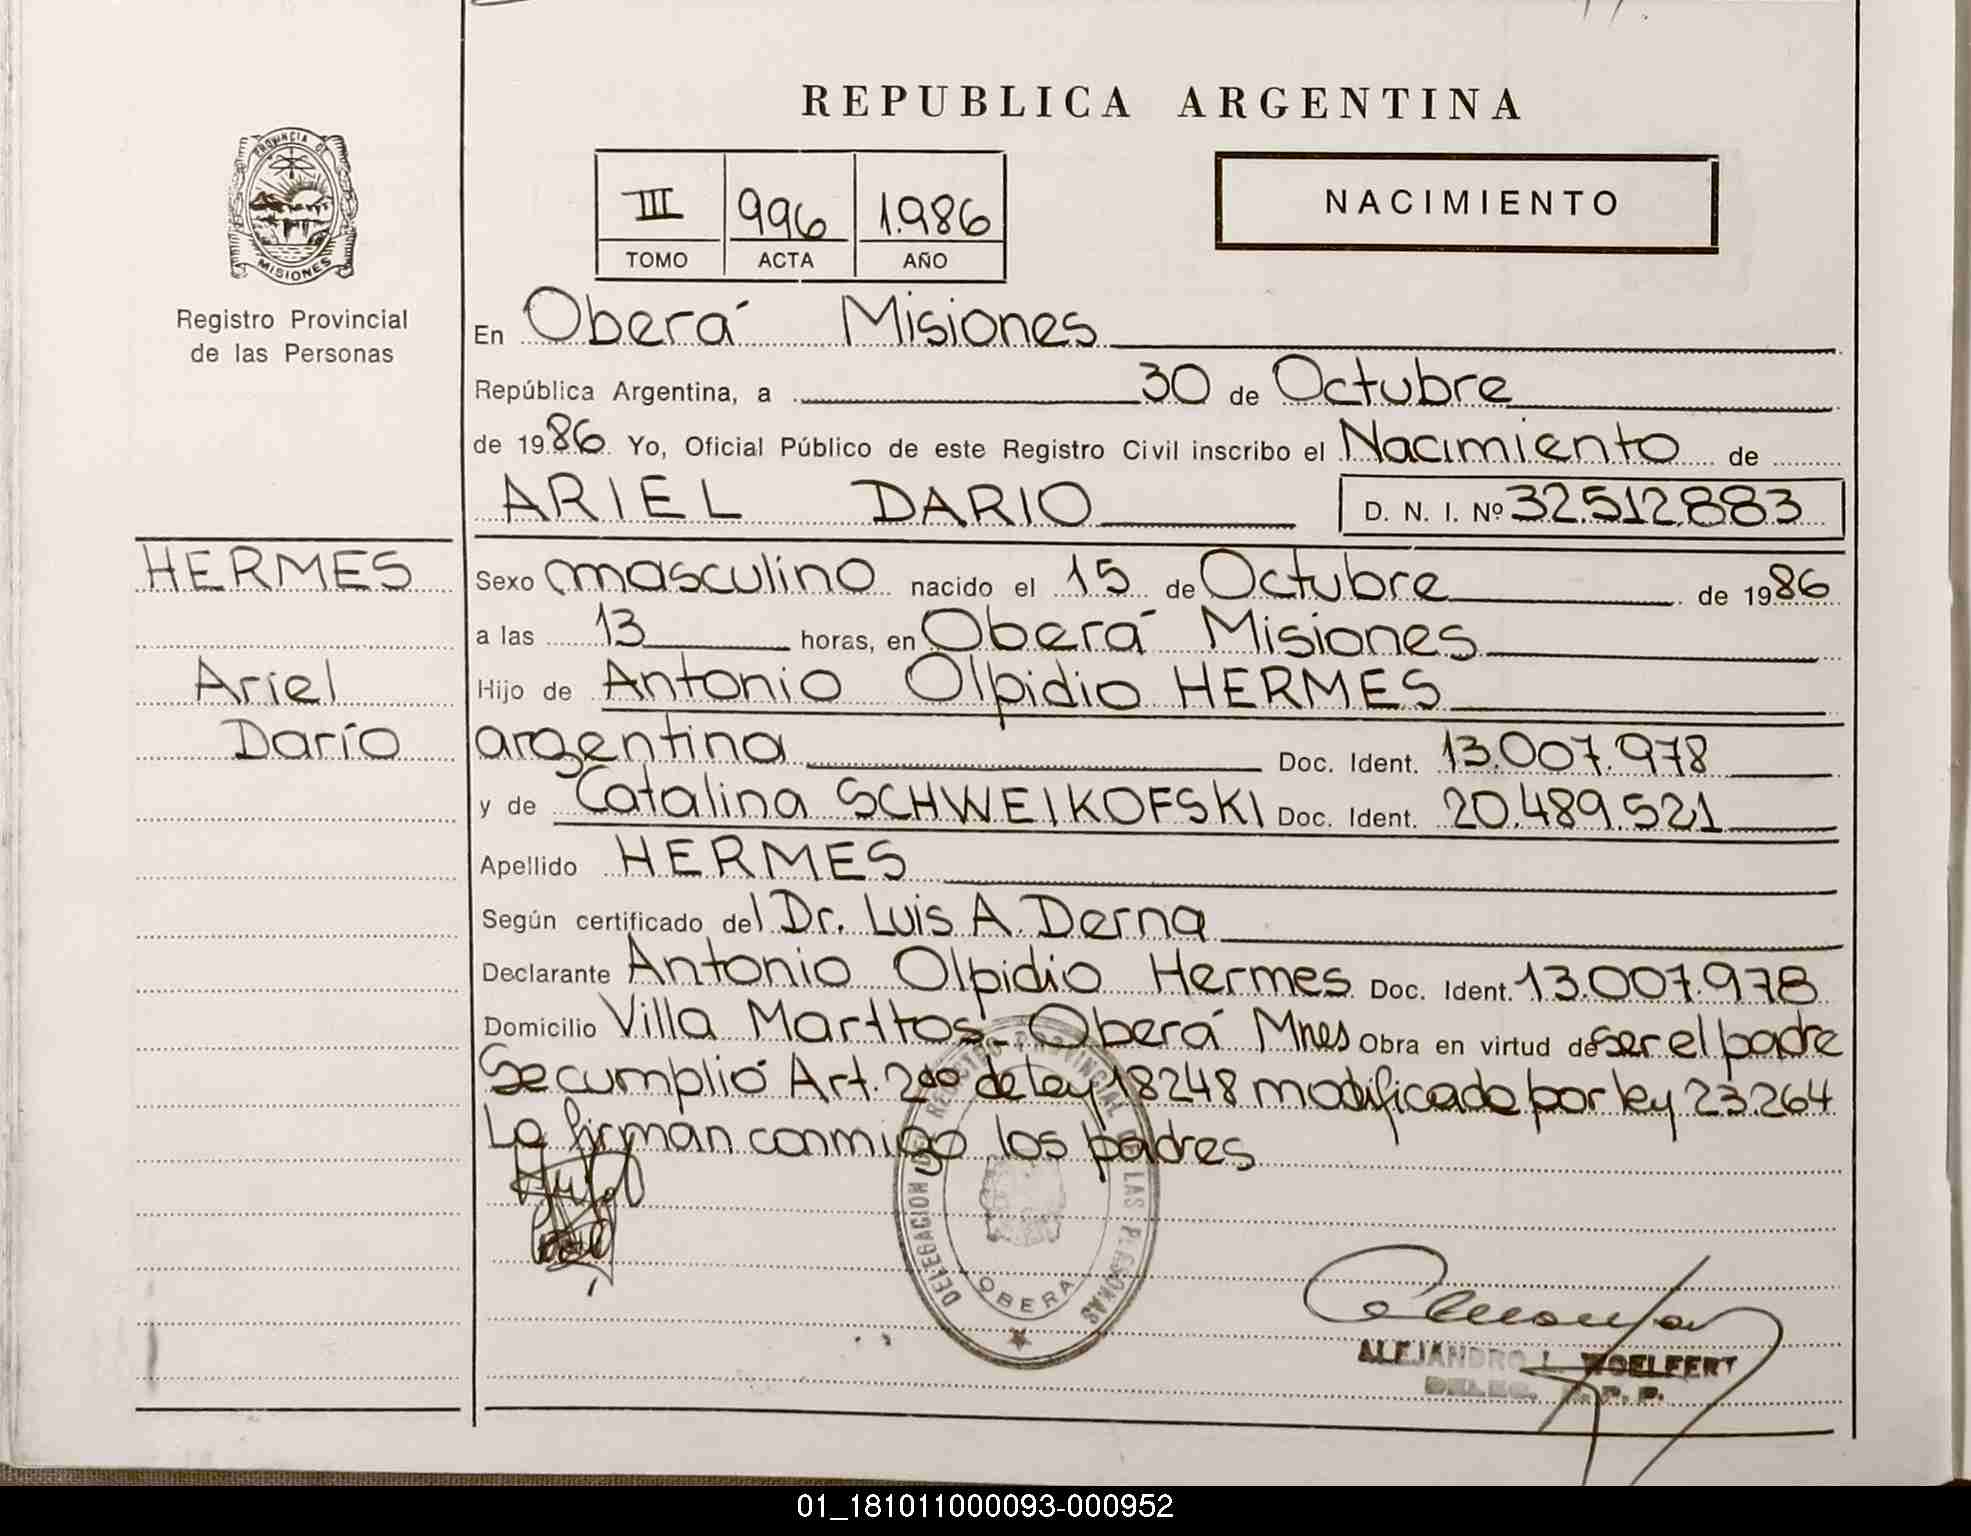 REPUBLICA ARGENTINA
PROVINCIA DE
MISIONES
Registro Provincial
de las Personas
III 996 1.986
TOMO ACTA AÑO
NACIMIENTO
En Oberá Misiones
República Argentina, a 30 de Octubre
de 1986 Yo, Oficial Público de este Registro Civil inscribo el Nacimiento de
ARIEL DARIO D. N. I. Nº 32.512.883
HERMES
Ariel
Darío
Sexo masculino nacido el 15 de Octubre de 1986
a las 13 horas, en Oberá Misiones
Hijo de Antonio Olpidio HERMES
argentina Doc. Ident. 13.007.978
y de Catalina SCHWEIKOFSKI Doc. Ident. 20.489.521
Apellido HERMES
Según certificado del Dr. Luis A. Derna
Declarante Antonio Olpidio Hermes Doc. Ident. 13.007.978
Domicilio Villa Marttos - Oberá Mnes Obra en virtud de ser el padre
Se cumplió Art. 2do de ley 18248 modificado por ley 23.264
La firman conmigo los padres
DELEGACION DEL REGISTRO PROVINCIAL DE LAS PERSONAS
OBERA
ALEJANDRO L. WOELFERT
DELEG. R. P. P.
01_181011000093-000952